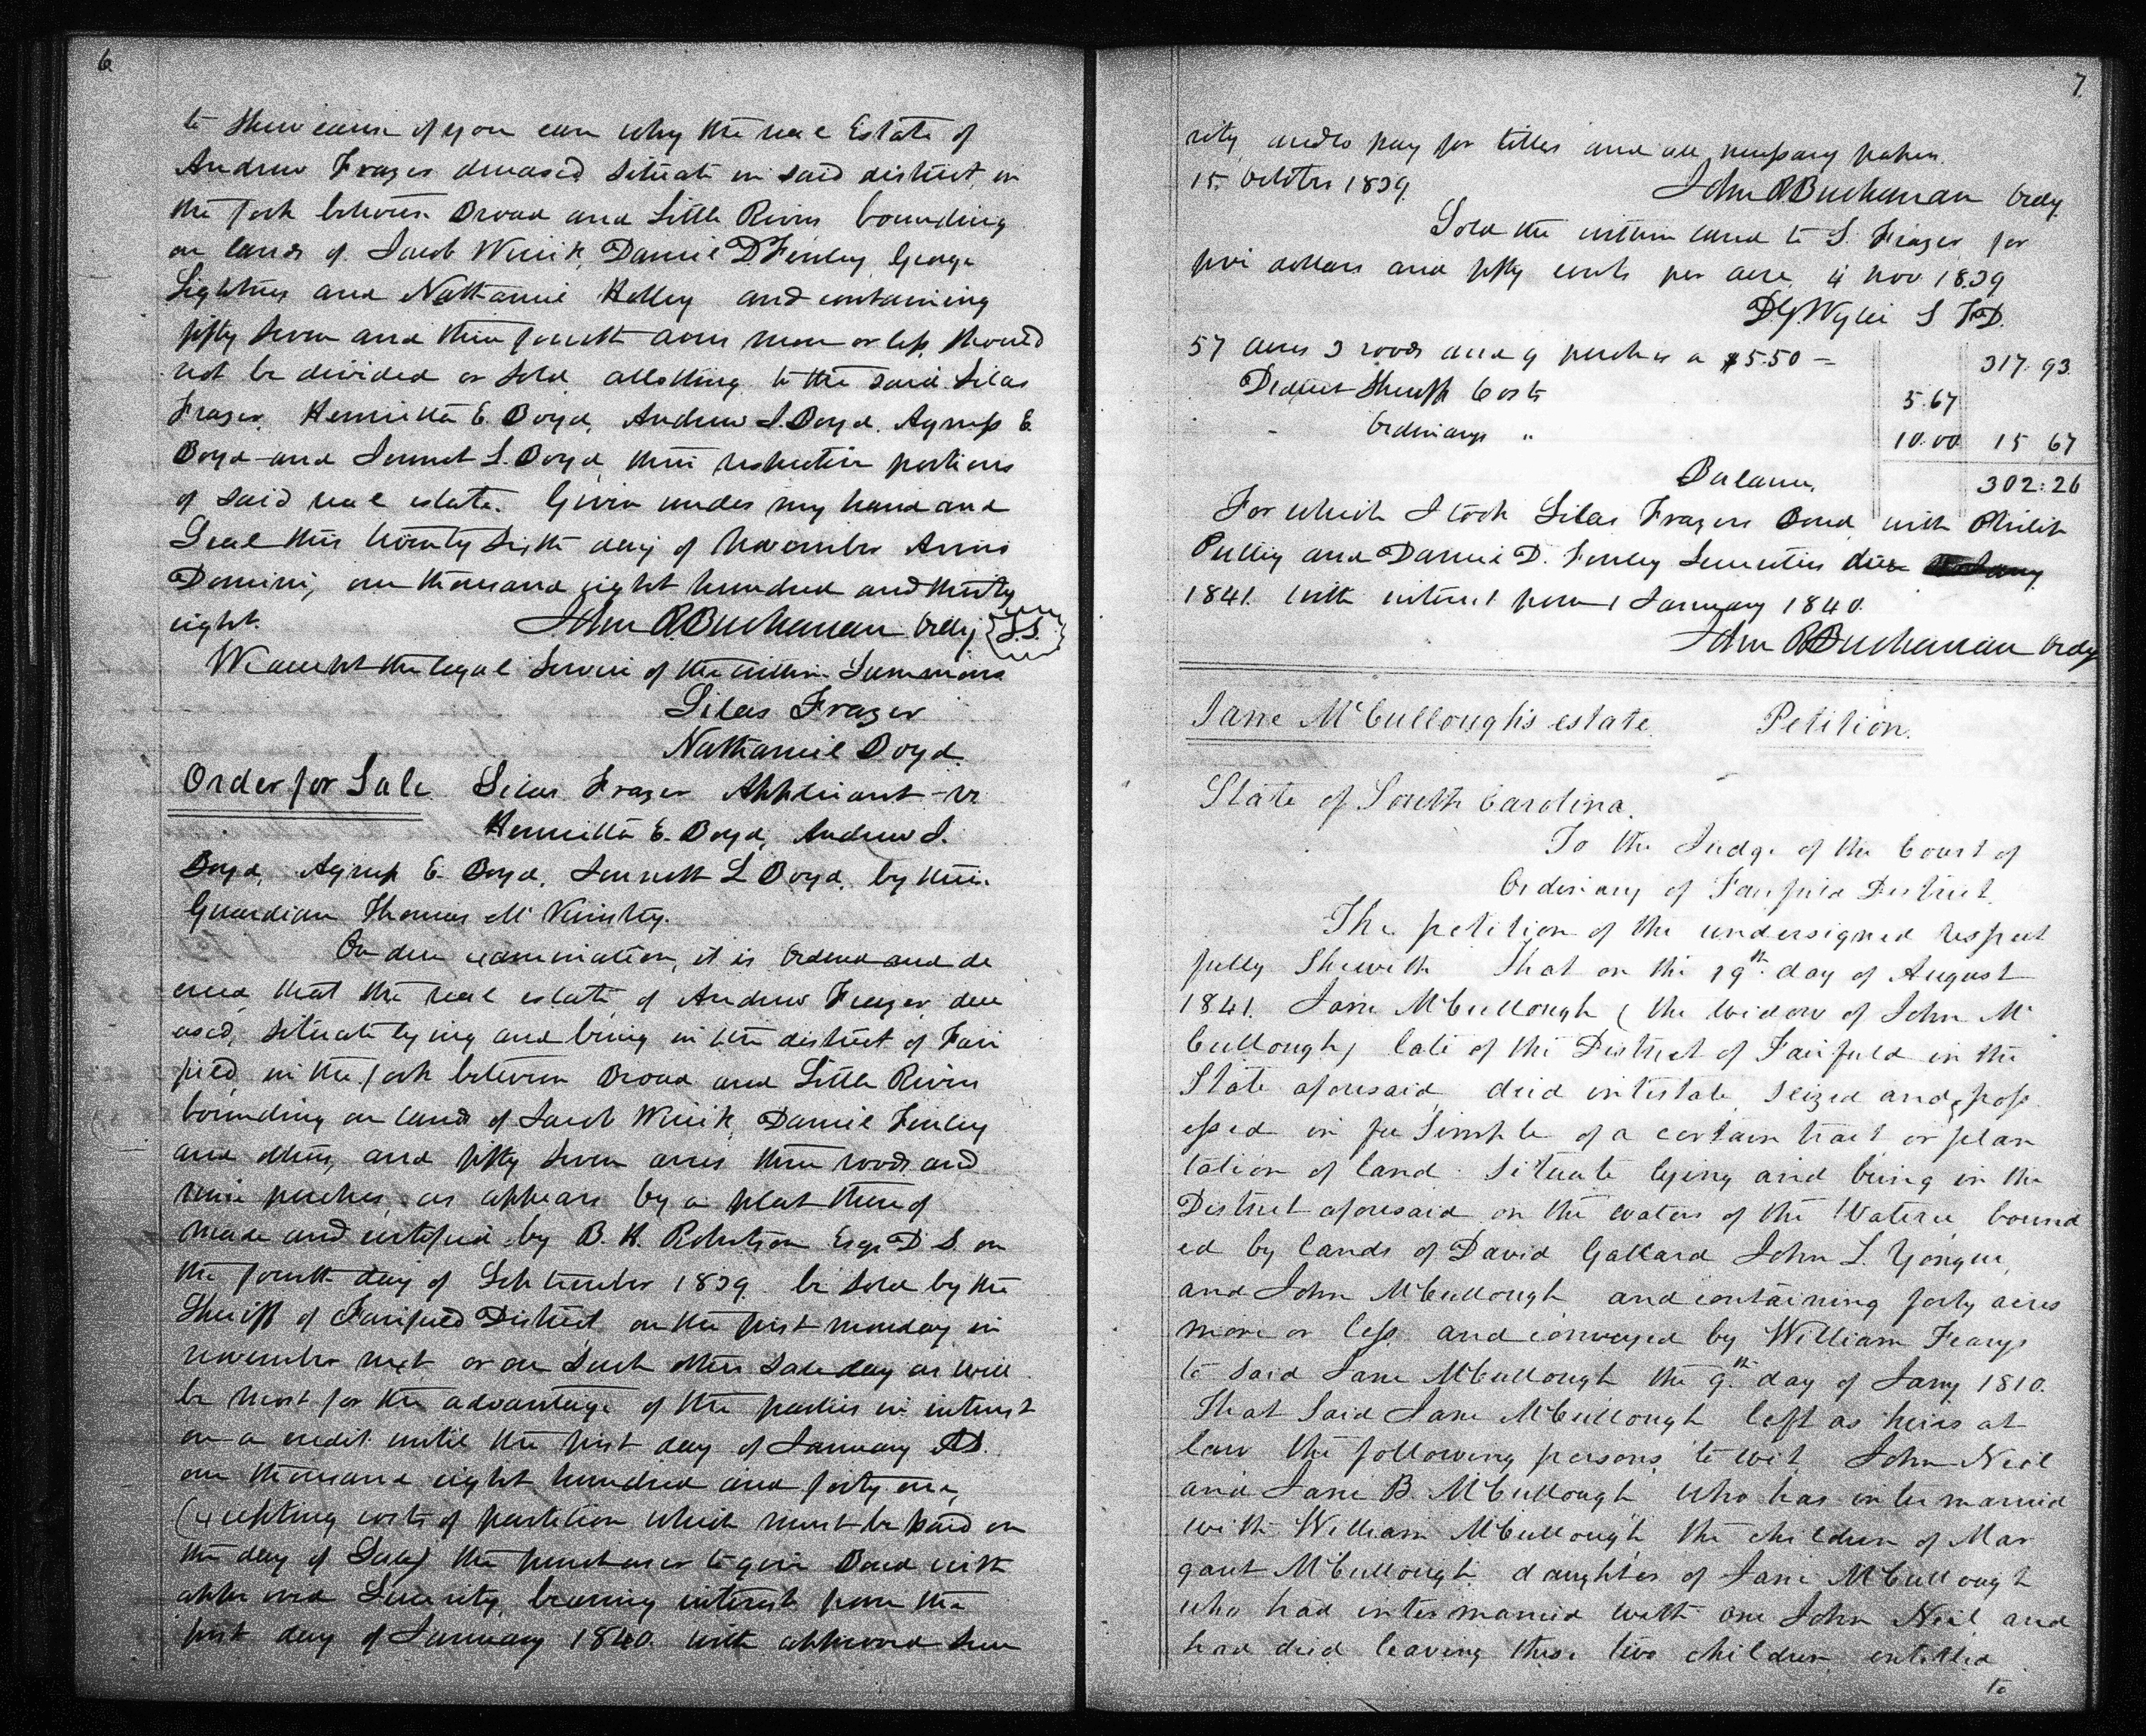 6
to shew cause if you can why the real Estate of
Andrew Frazer deceased situate in said district, in
the fork between Broad and Little Rivers bounding
on lands of Jacob Wirick, Daniel D. Finley, George
Lightner and Nathaniel Holley and containing
fifty seven and three fourth acres more or less, should
not be divided or sold allotting to the said Silas
Frazer, Henrietta E. Boyd, Andrew J. Boyd, Agness E.
Boyd and Jennet L. Boyd their respective portions
of said real estate. Given under my hand and
Seal this twenty sixth day of November Anno
Domini, one thousand eight hundred and thirty
eight. John R. Buchanan Ordy L.S.
We accept the legal service of the within Summons
Silas Frazer
Nathaniel Boyd.
Order for Sale Silas Frazer Applicant vs
Henrietta E. Boyd, Andrew J.
Boyd, Agness E. Boyd, Jennett L Boyd, by their
Guardian Thomas McKinstry.
On due examination, it is Ordered and de
creed that the real estate of Andrew Frazer, dece
ased, situate lying and being in the district of Fair
field in the fork between Broad and Little Rivers
bounding on lands of Jacob Wirick, Daniel Finley
and others, and fifty seven acres three roods and
nine perches, as appears by a plat thereof
made and certified by B. H. Robertson Esqr D. S. on
the fourth day of September 1839. be sold by the
Sheriff of Fairfield District, on the first monday in
november next or on such other sale day as will
be most for the advantage of the parties in interest
on a credit until the first day of January AD.
one thousand eight hundred and forty one,
(excepting costs of partition which must be paid on
the day of Sale) the purchaser to give Bond with
approved Security, bearing interest from the
first day of January 1840. with approved Secu
7.
rity, and to pay for titles and all necessary papers.
15. October 1839. John R Buchanan Ordy.
Sold the within land to S. Frazer for
five dollars and fifty cents per acre, 4 nov 1839
D.G. Wylie S F.D.
57 acres 3 roods and 9 perches a $5.50 = 317.93.
Deduct Sheriffs Costs 5.67
Ordinarys " 10.00 15 67
Balance, 302.26
For which I took Silas Frazers Bond, with Philip
Pulley and Daniel D. Finley Securities due
1841. with interest from 1 January 1840.
John R Buchanan Ordy
Jane McCullough's estate. Petition.
State of South Carolina.
To the Judge of the Court of
Ordinary of Fairfield District.
The petition of the undersigned respect
fully Sheweth That on the 19th day of August
1841. Jane McCullough (the widow of John Mc
Cullough) late of the District of Fairfield in the
State aforesaid, died intestate, seized and poss
essed in fee Simple of a certain tract or plan
tation of land situate lying and being in the
District aforesaid on the waters of the Wateree, bound
ed by lands of David Gallard John L. Yongue,
and John McCullough and containing forty acres
more or less and conveyed by William
to said Jane McCullough the 9th day of Jany 1810.
That said Jane McCullough left as heirs at
law the following persons, to wit, John Neil
and Jane B. McCullough who has intermarried
with William McCullough the children of Mar
garet McCullough daughter of Jane McCullough
who had intermarried with one John Neil, and
had died leaving these two children, entitled
to